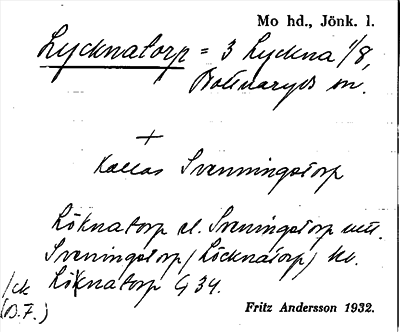 Mo hd., Jönk. l.
Lycknatorp = 3 Lyckna 1/8,
Bottnaryds sn.
+
Kallas Svenningstorp
Löknatorp el. Sveningstorp
Sveningstorp / Löcknatorp / Kv.
/ck Löknatorp G 34.
(O.F.)
Fritz Andersson 1932.